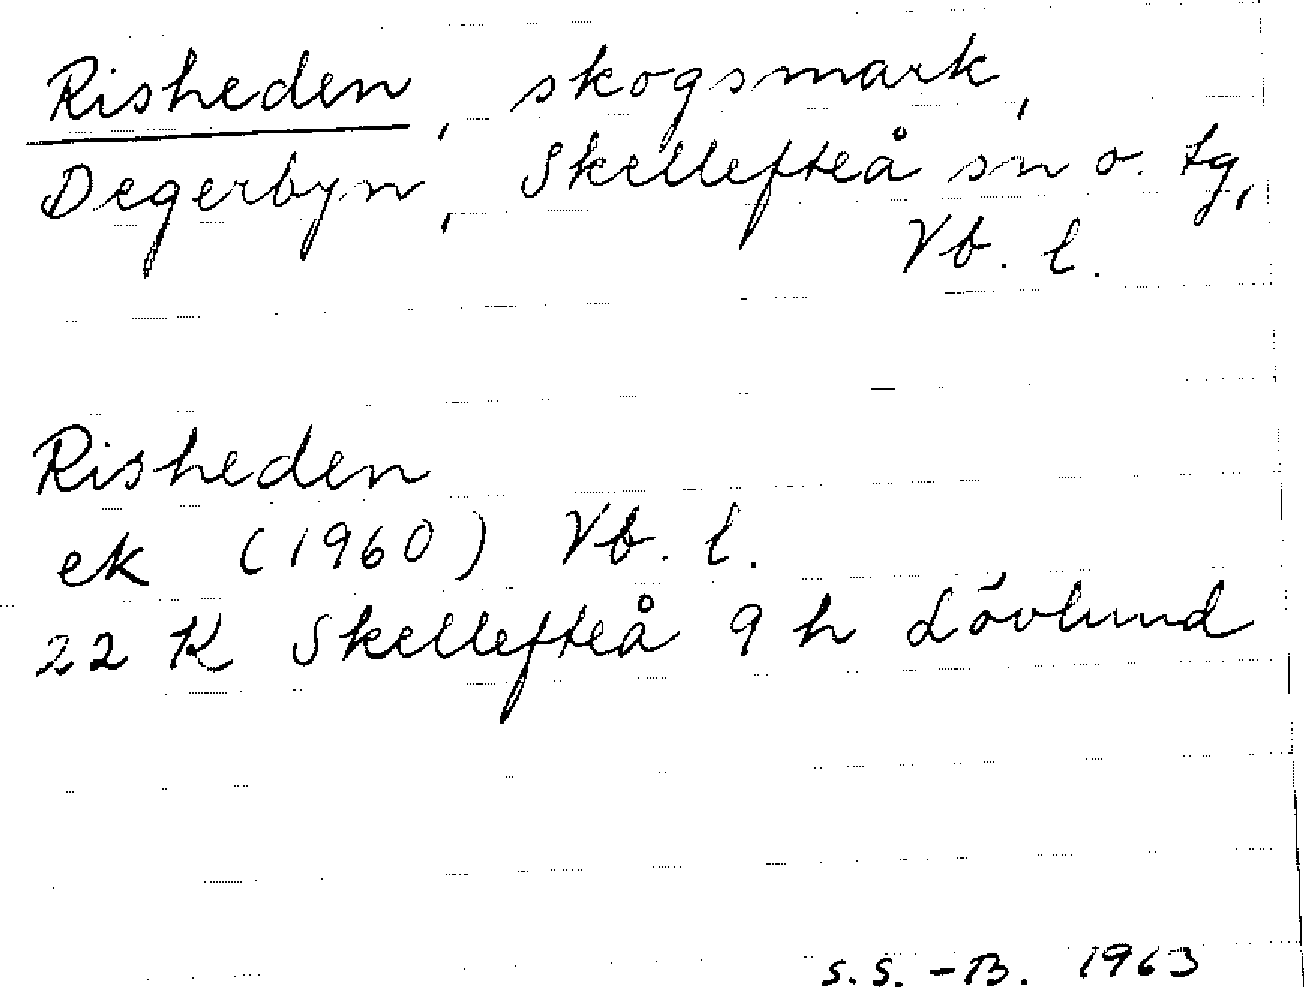 Risheden, skogsmark,
Degerbyn, Skellefteå sn o. tg,
Vb. l.
Risheden
ek (1960) Vb. l.
22 K Skellefteå 9 h Lövlund
S.S.-B. 1963